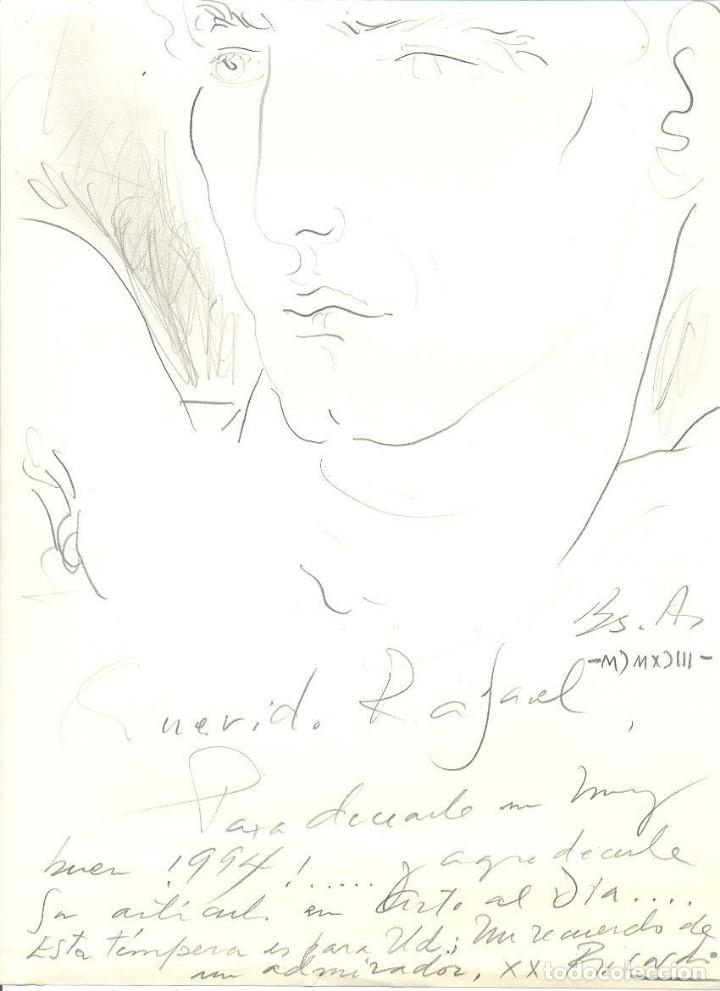 Bs. As
Querido Rafael,
Para desearle un muy
buen ¡1994!...... y agradecerle
Su artículo en Arte al Día....
Esta témpera es para Ud.; Un recuerdo de
un admirador, XX
todocoleccion